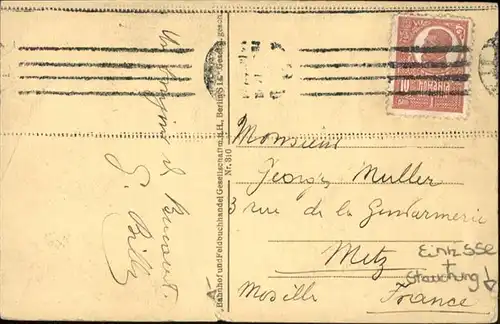 Un bonjour de Bucarest.
G. Billy
Bahnhof und Feldbuchhandel Gesellschaft m.b.H., Berlin S 14. Gesetzl. gesch.
Nr. 310
10
ROMANIA
BANI
Monsieur
Georg Muller
3 rue de la Gendarmerie
Metz
Moselle France
EinRisse
+
Stauchung